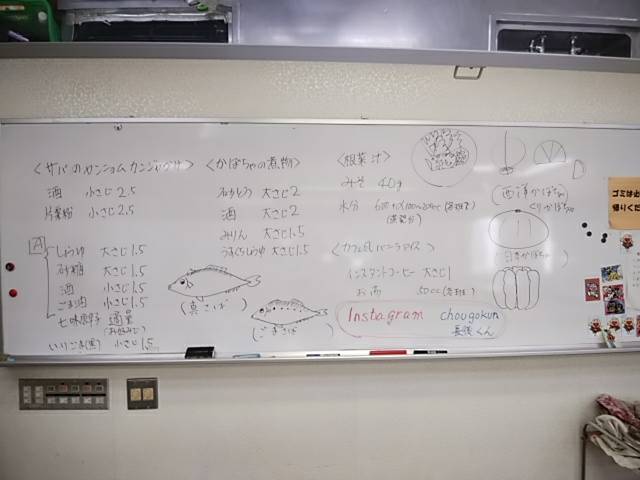 <サバのカンジョムカンジャンケ>
酒 小さじ2.5
片栗粉 小さじ2.5
A
しょうゆ 大さじ1.5
砂糖 大さじ1.5
酒 小さじ1.5
ごま油 小さじ1.5
七味唐辛子 適量
(お好みで)
いりごま(黒) 小さじ1.5
<かぼちゃの煮物>
砂とう 大さじ2
酒 大さじ2
みりん 大さじ1.5
うすくちしょうゆ 大さじ1.5
(真さば)
(ごまさば)
<根菜汁>
みそ 40g
水分
<カフェ風バニラアイス>
インスタントコーヒー 大さじ1
お湯 50cc
Instagram chougokun
(西洋かぼちゃ)
くりかぼちゃ
(日本かぼちゃ)
ゴミは必
帰りくだ